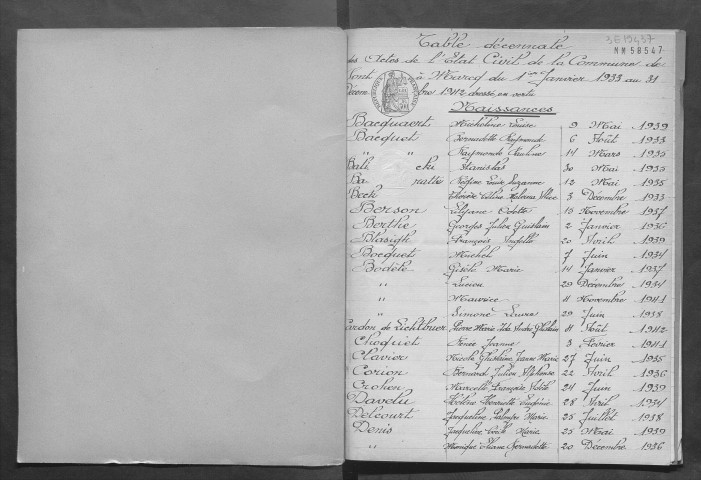 3E19457
MM 58547
Table décennale
des Actes de l'Etat Civil de la Commune de
Pont à Marcq du 1er Janvier 1933 au 31
Décembre 1942 dressée en vertu
Naissances
Bacquaert Micheline Louise 9 Mai 1939
Bacquet Bernadette Raymonde 6 Août 1933
" " Raymonde Pauline 14 Mars 1935
Stanislas 30 Mai 1935
Louise Suzanne 12 Mai 1935
Beck Thérèse Céline 3 Décembre 1933
Berson Odette 15 Novembre 1937
Berthe Georges Julien Guislain 2 Janvier 1936
François 20 Avril 1939
Bocquet Michel 7 Juin 1934
Bodèle Gisèle Marie 14 Janvier 1937
" Lucien 29 Décembre 1934
" Maurice 11 Novembre 1941
" Simone Laure 29 Juin 1938
Cardon de Lichtbuer Pierre Marie André Ghislain 11 Août 1942
Choquet Renée Jeanne 3 Février 1941
Clavier Nicole Ghislaine Jeanne Marie 27 Juin 1935
Corion Bernard Julien Alphonse 22 Avril 1936
Crohen Marcelle Françoise 24 Juin 1939
Davelu Hélène Henriette Eugénie 28 Avril 1934
Delcourt Jacqueline Marie 25 Juillet 1938
Denis Jacqueline Marie 25 Mai 1939
" Monique Eliane Bernadette 20 Décembre 1936